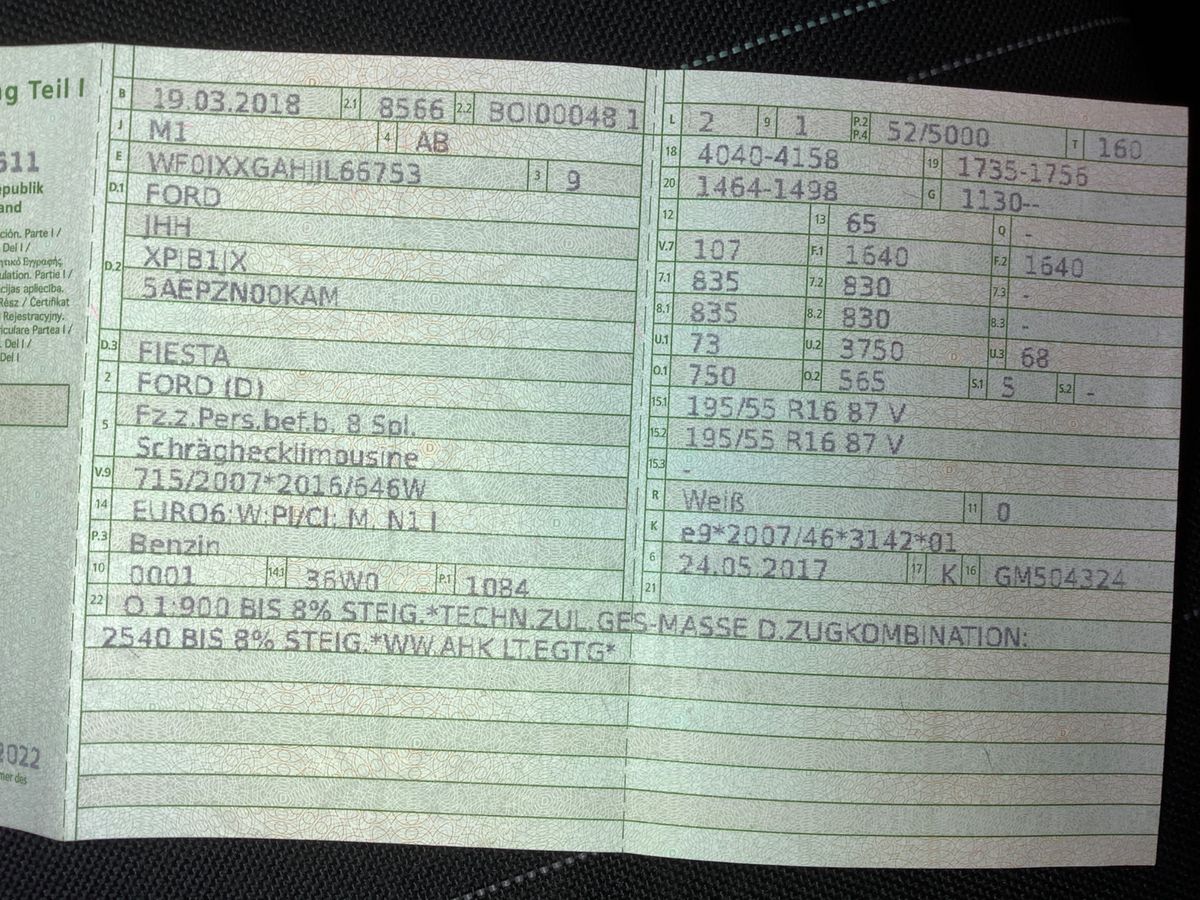 ng Teil I
611
epublik
and
ción. Parte I /
Del I /
ulation. Partie I /
cijas apliecība.
Rész / Certifikat
Rejestracyjny.
riculare Partea I /
. Del I /
Del I
2022
mer des
B 19.03.2018 2.1 8566 2.2 BOI00048 1
J M1 4 AB
E WF0JXXGAHJJL66753 3 9
D.1 FORD
D.2 JHH
XPJB1JX
5AEPZN00KAM
D.3 FIESTA
2 FORD (D)
5 Fz.z.Pers.bef.b. 8 Spl.
Schräghecklimousine
V.9 715/2007*2016/646W
14 EURO6;W;PI/CI; M, N1 I
P.3 Benzin
10 0001 14.1 36W0 P.1 1084
L 2 9 1 P.2 P.4 52/5000 T 160
18 4040-4158 19 1735-1756
20 1464-1498 G 1130--
12 13 65 Q -
V.7 107 F.1 1640 F.2 1640
7.1 835 7.2 830 7.3 -
8.1 835 8.2 830 8.3 -
U.1 73 U.2 3750 U.3 68
O.1 750 O.2 565 S.1 5 S.2 -
15.1 195/55 R16 87 V
15.2 195/55 R16 87 V
15.3 -
R Weiß 11 0
K e9*2007/46*3142*01
6 24.05.2017 17 K 16 GM504324
21
22 O.1:900 BIS 8% STEIG.*TECHN.ZUL.GES-MASSE D.ZUGKOMBINATION:
2540 BIS 8% STEIG.*WW.AHK LT.EGTG*